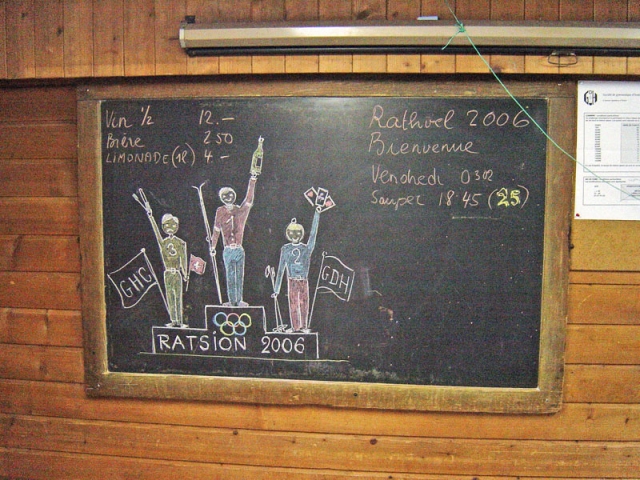 Vin 1/2 12.-
Bière 2 50
LIMONADE (1l) 4 -
Rathvel 2006
Bienvenue
Vendredi 03 02
Souper 18 45 (25)
1
3
2
GHG
GDH
RATSION 2006